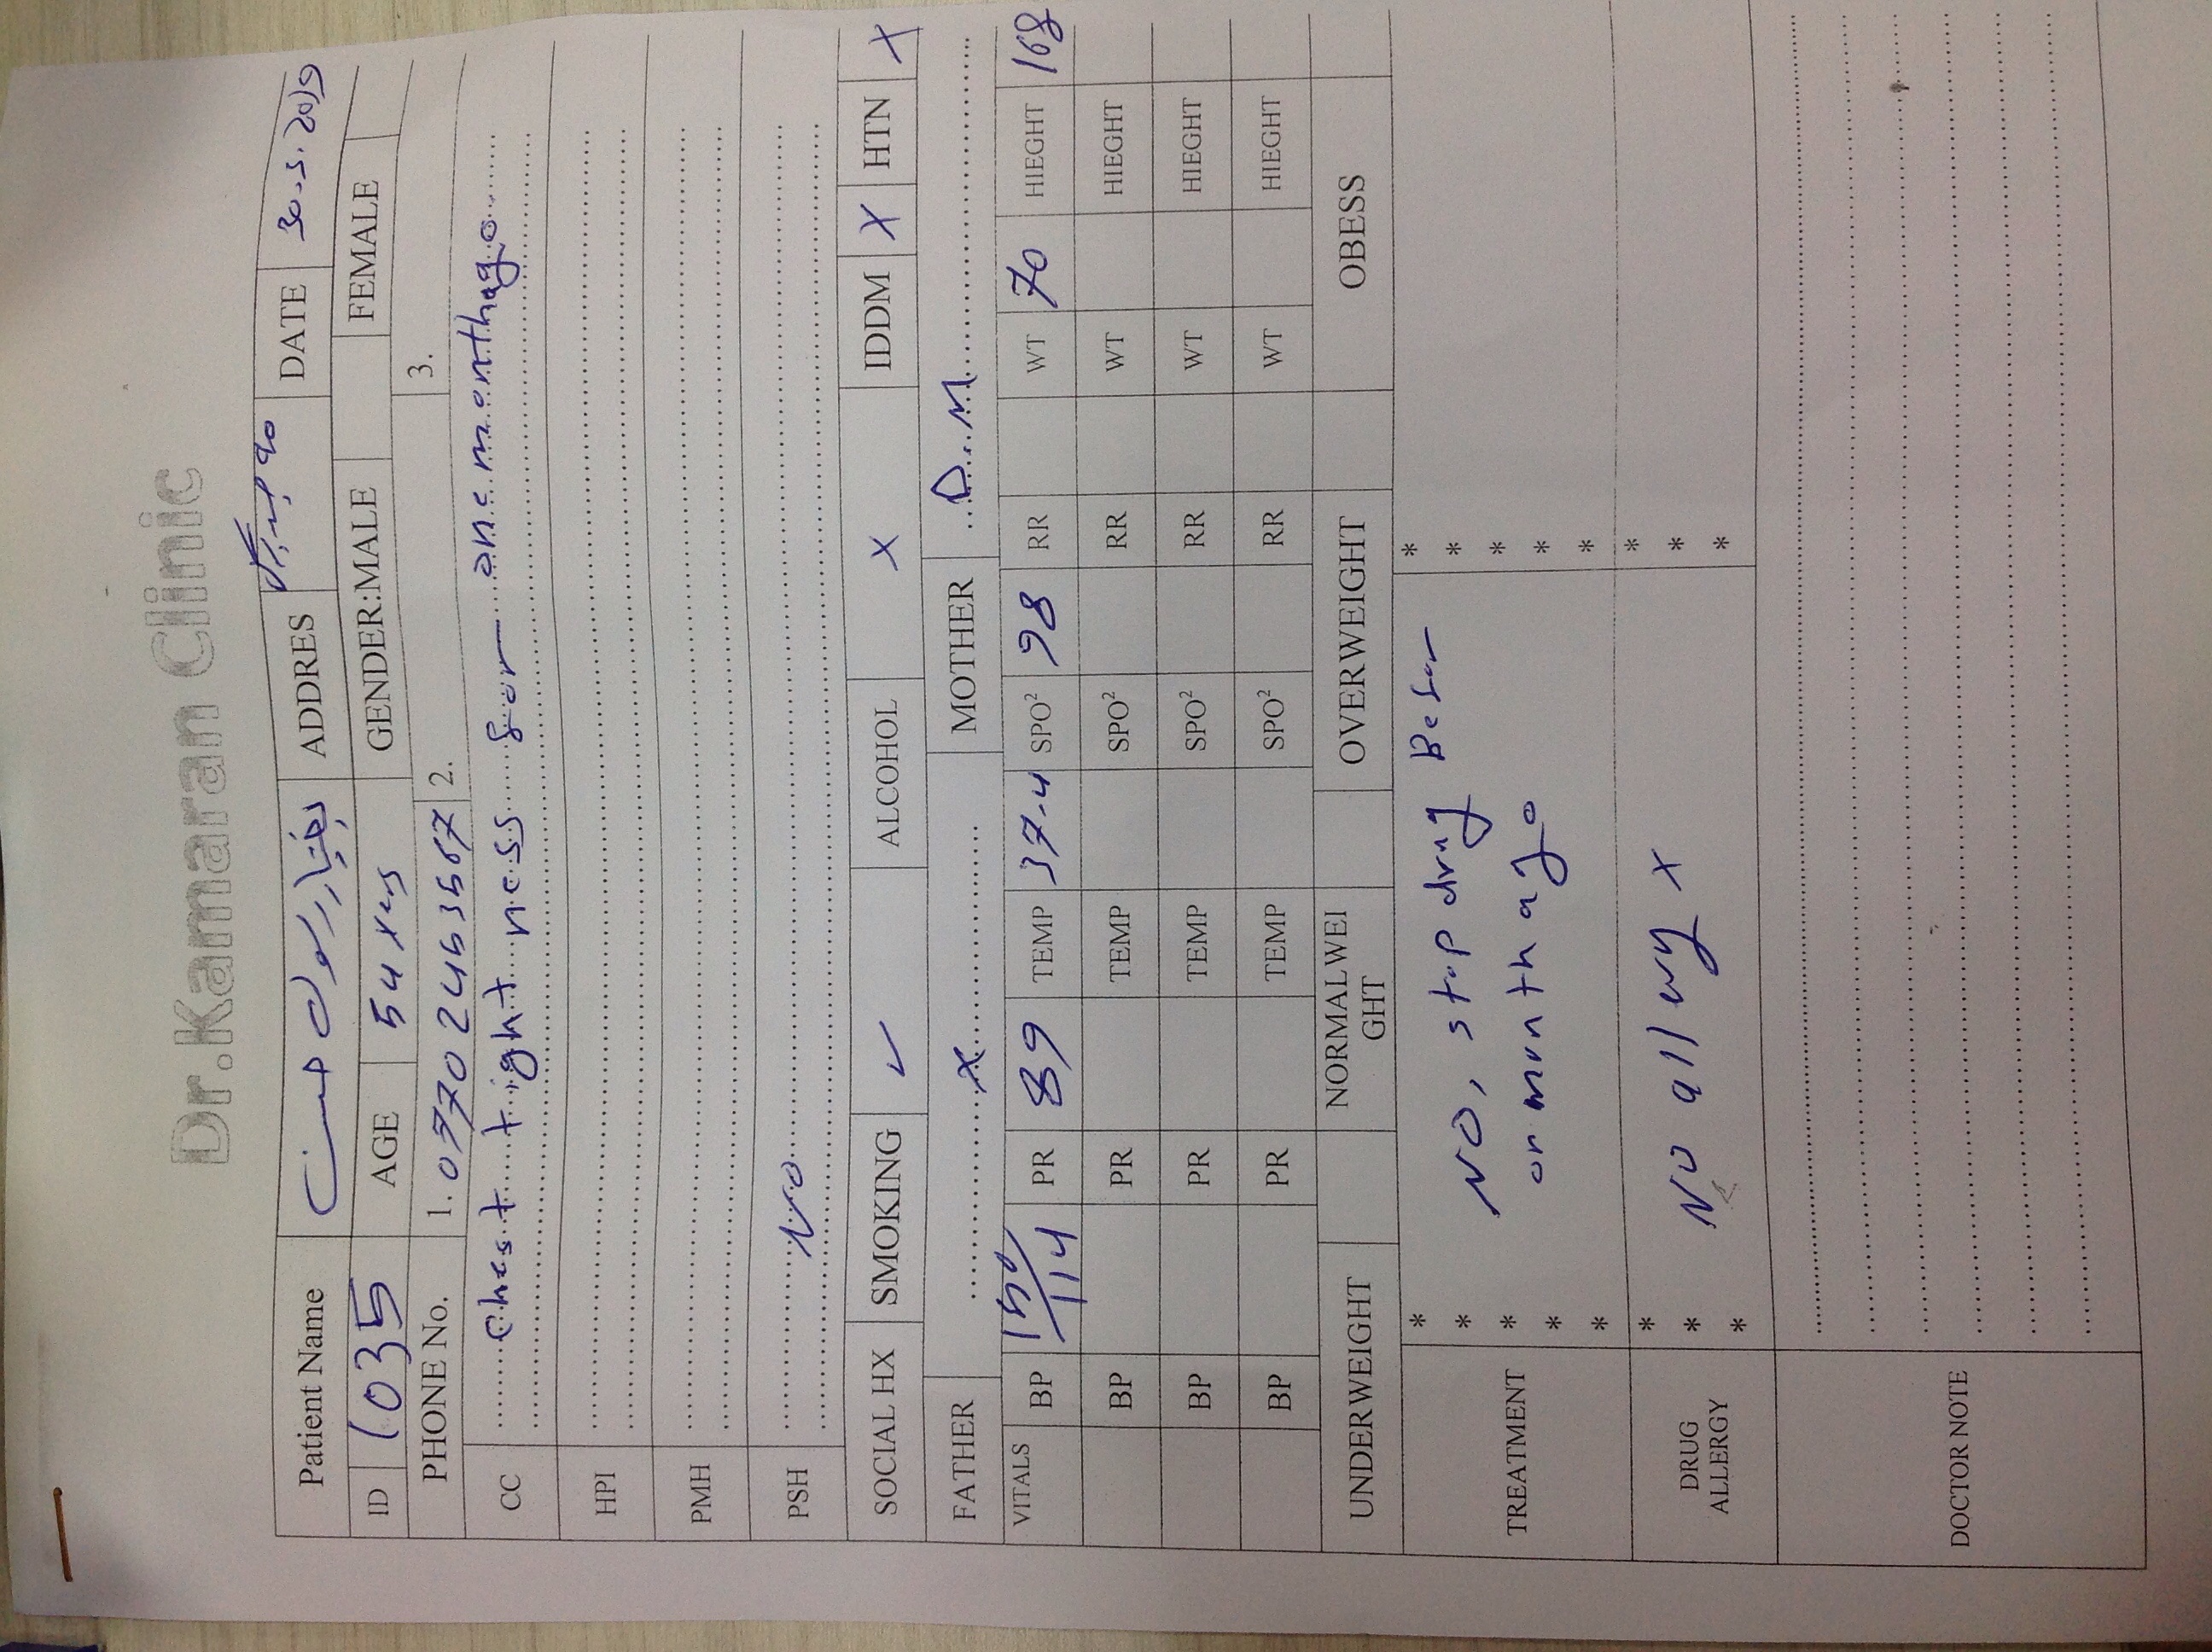 Dr.Kamaran Clinic
Patient Name بختيار رسول ADDRES DATE 30.5.2019
ID 1035 AGE 54 yrs GENDER:MALE FEMALE
PHONE No. 1. 07702463567 2. 3.
CC chest tightness for one month ago
HPI
PMH
PSH No
SOCIAL HX SMOKING ✓ ALCOHOL x IDDM X HTN X
FATHER x MOTHER D.M
VITALS BP 150/14 PR 89 TEMP 37.4 SPO² 98 RR WT 70 HIEGHT 168
BP PR TEMP SPO² RR WT HIEGHT
BP PR TEMP SPO² RR WT HIEGHT
BP PR TEMP SPO² RR WT HIEGHT
UNDERWEIGHT NORMALWEI
GHT OVERWEIGHT OBESS
TREATMENT
* No, stop drug Befor *
* on month ago *
* *
* *
* *
DRUG
ALLERGY
* No allergy x *
* *
* *
DOCTOR NOTE